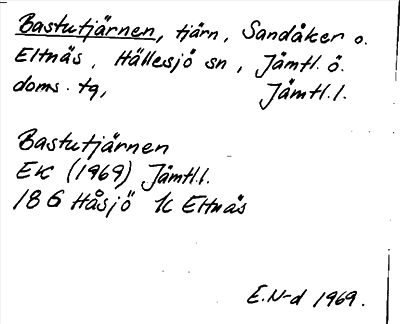 Bastutjärnen, tjärn, Sandåker o.
Eltnäs, Hällesjö sn, Jämtl. ö.
doms. tg, Jämtl. l.
Bastutjärnen
EK (1969) Jämtl.l.
18 G Håsjö 1c Eltnäs
E.N-d 1969.